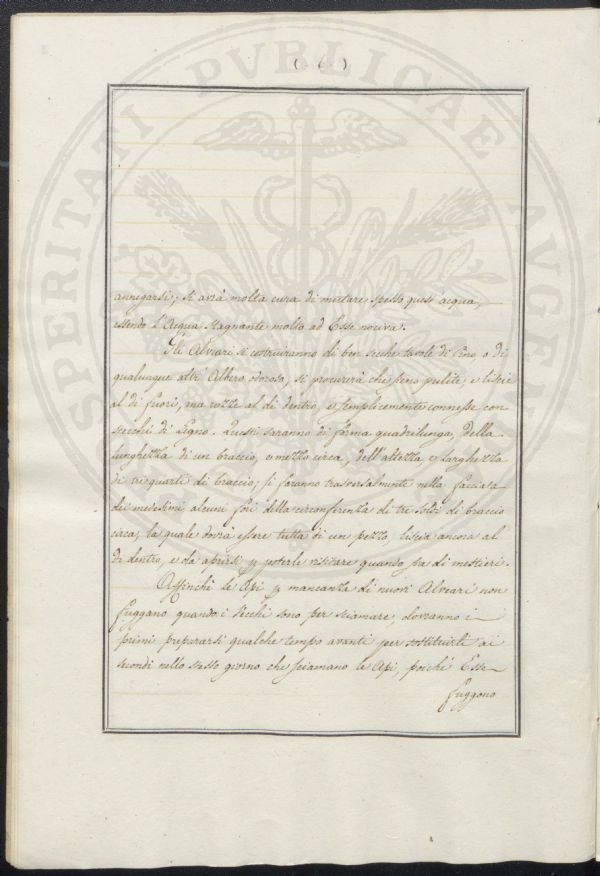 ( 6. )
annegarsi; si avrà molta cura di mutare spesso quest' acqua,
essendo l'Acqua Stagnante molto ad Esse nociva.
Gli Alveari si costruiranno di ben secche tavole di Pino, o di
qualunque altr' Albero odoroso, si procurerà che sieno pulite, e liscie
al di fuori, ma rozze al di dentro, e semplicemente connesse con
stecchi di Legno. Questi saranno di forma quadrilunga, della
lunghezza di un braccio, e mezzo circa, dell'altezza, e larghezza
di tre quarti di braccio; si faranno trasversalmente nella facciata
dei medesimi alcuni fori della circonferenza di tre soldi di braccio
circa, la quale dovrà essere tutta di un pezzo, liscia ancora al
di dentro, e da aprirsi p poterle visitare quando fa di mestieri.
Affinchè le Api p mancanza di nuovi Alveari non
fuggano quando i Vecchi sono per sciamare, dovranno i
primi prepararsi qualche tempo avanti per sostituirli ai
secondi nello stesso giorno che sciamano le Api, poichè Esse
fuggono
SPERITATI PVBLICAE AVGEN